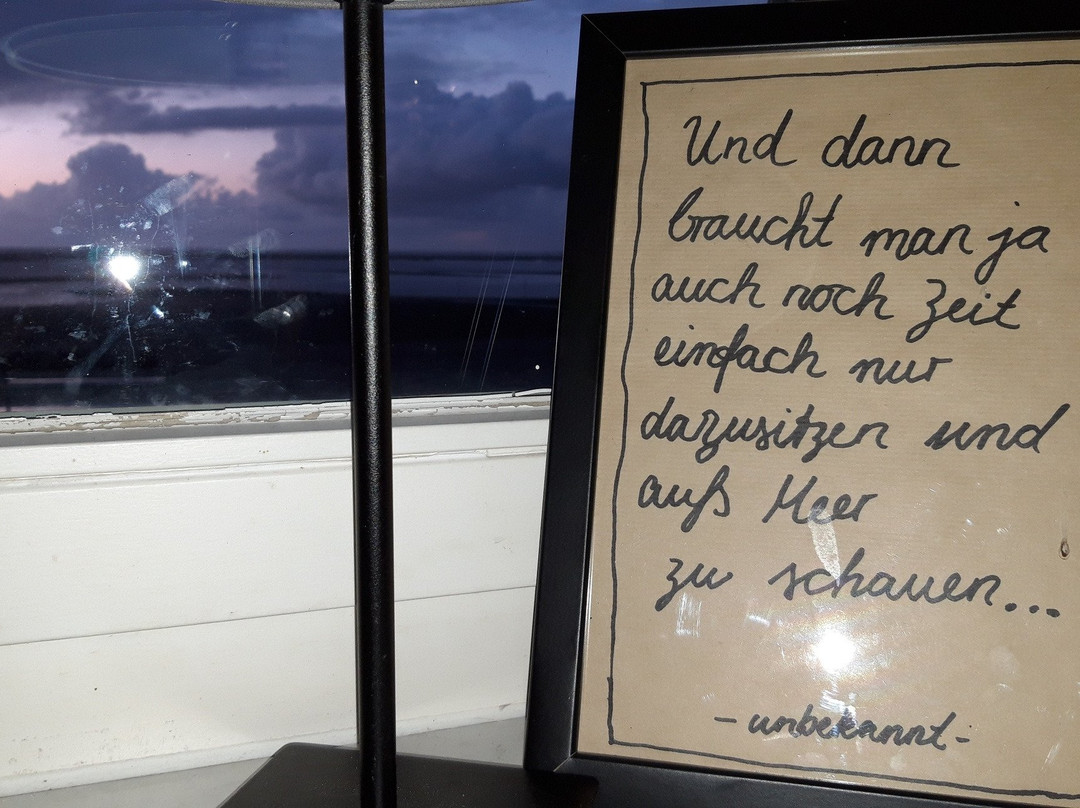 Und dann
braucht man ja
auch noch Zeit
einfach nur
dazusitzen und
aufs Meer
zu schauen...
- unbekannt -